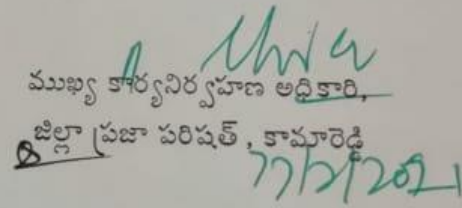 ముఖ్య కార్యనిర్వహణ అధికారి,
జిల్లా ప్రజా పరిషత్, కామారెడ్డి